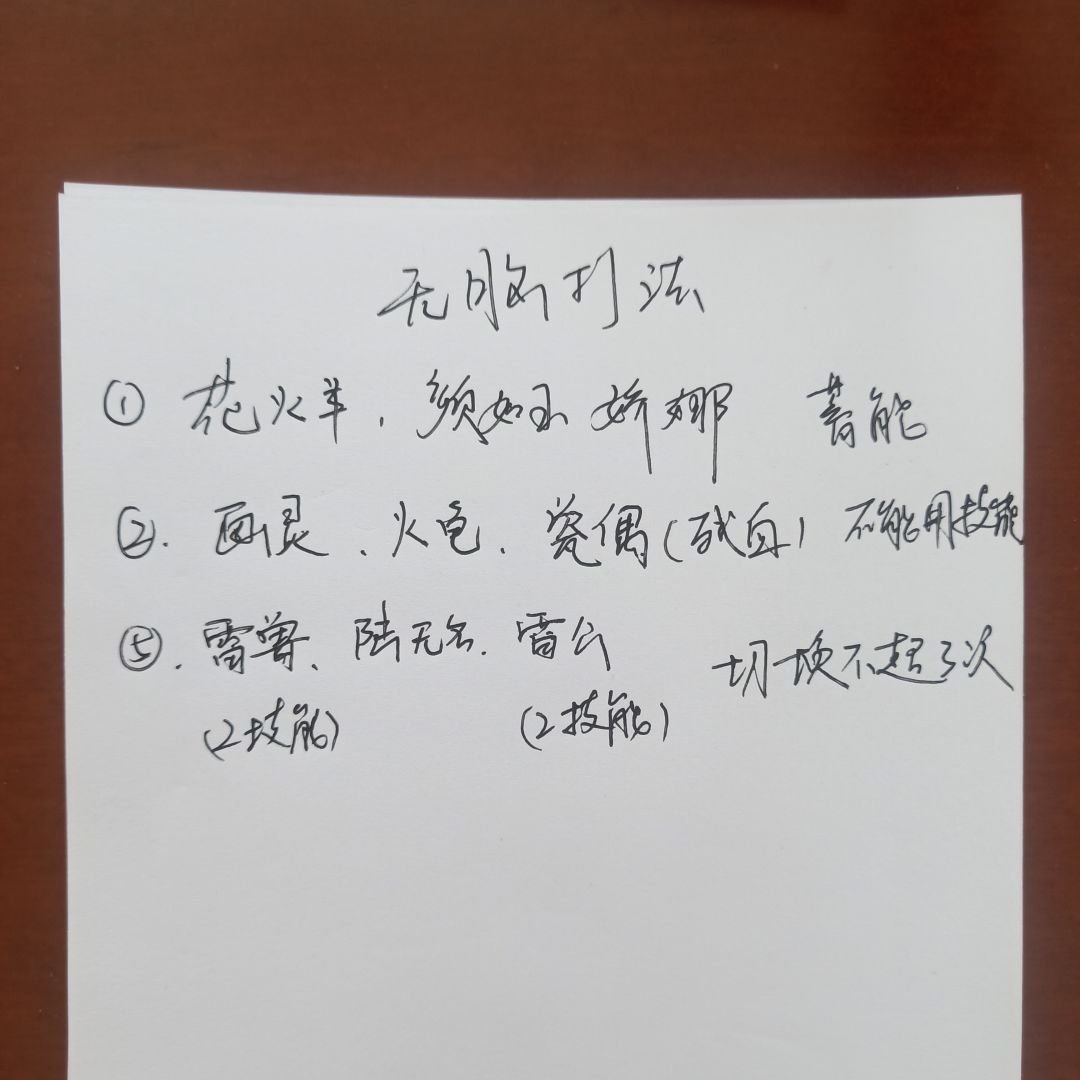 无脑打法
① 花火羊, 颜如玉 娇娜 蓄能
②. 画灵、火龟、瓷偶(残血) 不能用技能
⑤. 雷兽、陆无名. 雷公 切换不超3次
(2技能) (2技能)